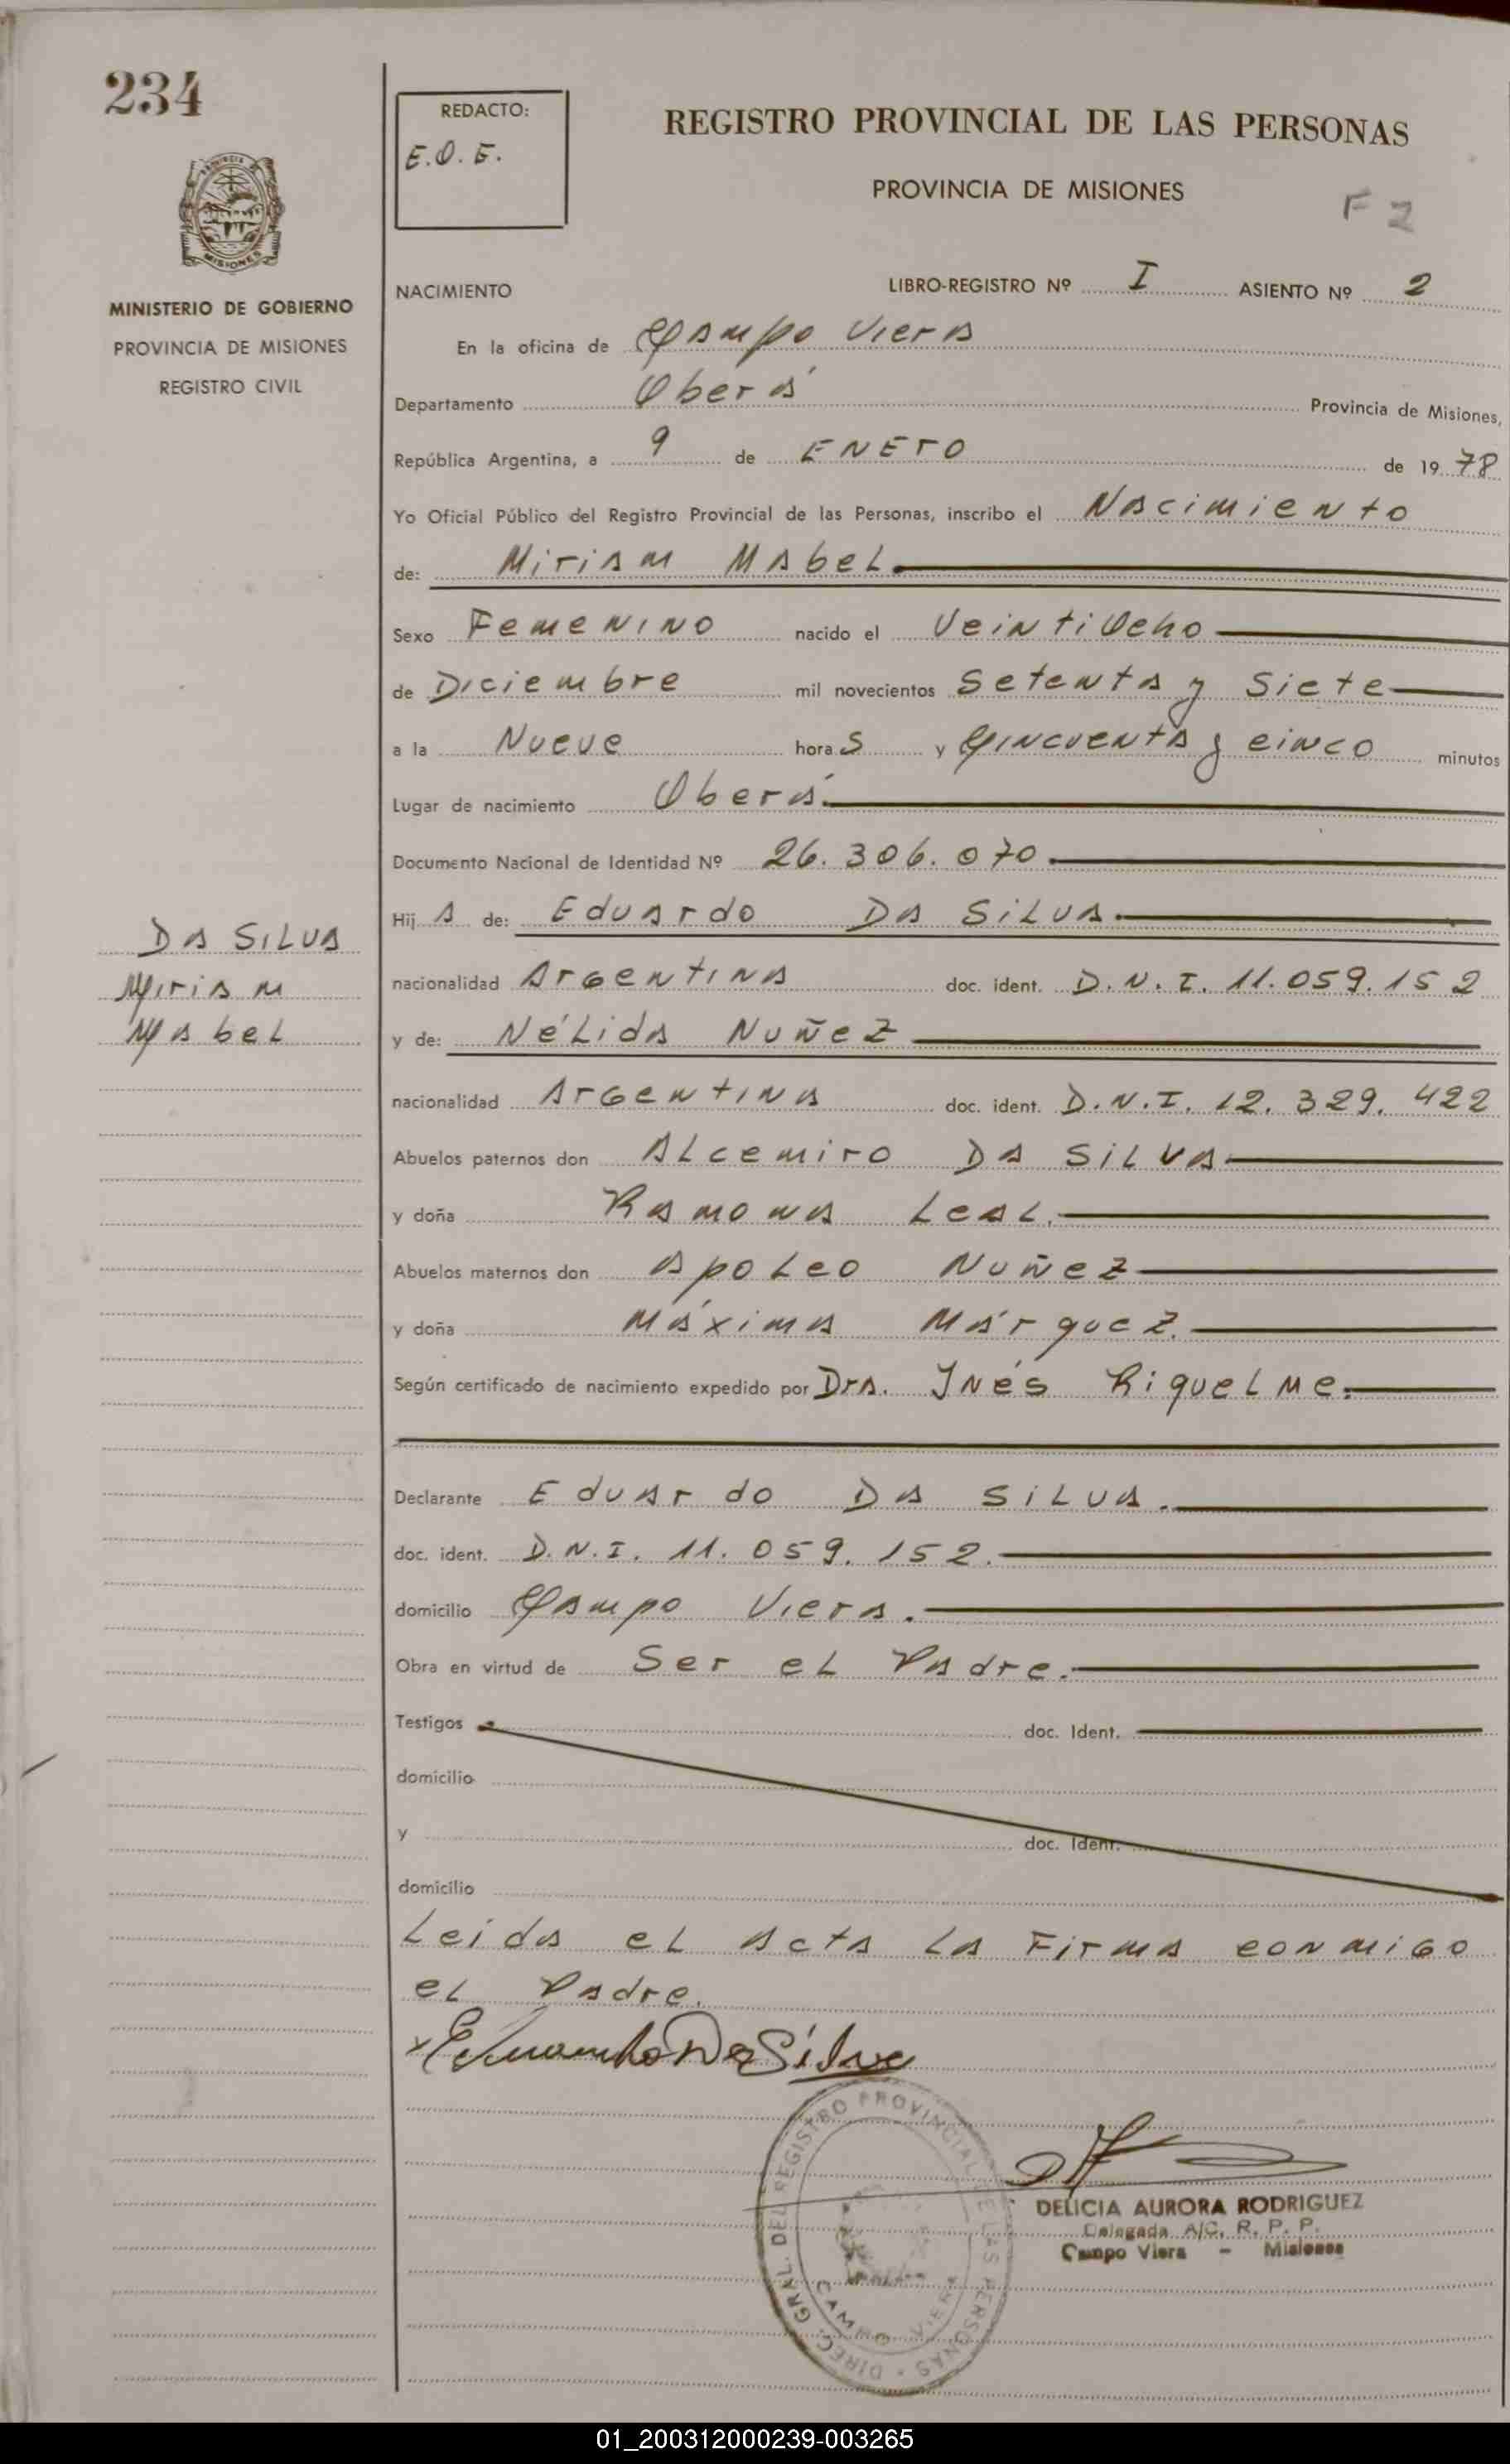 234
REDACTO:
E.O.E.
REGISTRO PROVINCIAL DE LAS PERSONAS
PROVINCIA DE MISIONES
F 2
MISIONES
MINISTERIO DE GOBIERNO
PROVINCIA DE MISIONES
REGISTRO CIVIL
NACIMIENTO LIBRO-REGISTRO Nº I ASIENTO Nº 2
En la oficina de Campo Viera
Departamento Oberá Provincia de Misiones,
República Argentina, a 9 de ENEro de 1978
Yo Oficial Público del Registro Provincial de las Personas, inscribo el Nacimiento
de: Miriam Mabel
Sexo Femenino nacido el Veintiocho
de Diciembre mil novecientos Setenta y Siete
a la Nueve horas y Cincuenta y cinco minutos
Lugar de nacimiento Oberá.
Documento Nacional de Identidad Nº 26.306.070
Hija de: Eduardo Da Silva
nacionalidad Argentina doc. ident. D.N.I. 11.059.152
y de: Nélida Nuñez
nacionalidad Argentina doc. ident. D.N.I. 12.329.422
Abuelos paternos don Alcemiro Da Silva
y doña Ramona Leal.
Abuelos maternos don Apoleo Nuñez
y doña Máxima Márquez.
Según certificado de nacimiento expedido por Dra. Inés Riquelme.
Declarante Eduardo Da Silva.
doc. ident. D.N.I. 11.059.152.
domicilio Campo Viera.
Obra en virtud de Ser el Padre.
Testigos doc. Ident.
domicilio
y doc. Ident.
domicilio
Leida el acta la Firma conmigo
el Padre.
x Eduardo Da Silva
DA SILVA
Miriam
Mabel
DIREC. GRAL. DEL REGISTRO PROVINCIAL DE LAS PERSONAS
CAMPO VIERA
DELICIA AURORA RODRIGUEZ
Delegada A/C. R. P. P.
Campo Viera - Misiones
01_200312000239-003265